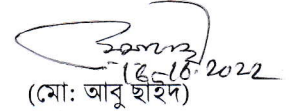 16.10.2022
(মো: আবু ছাইদ)